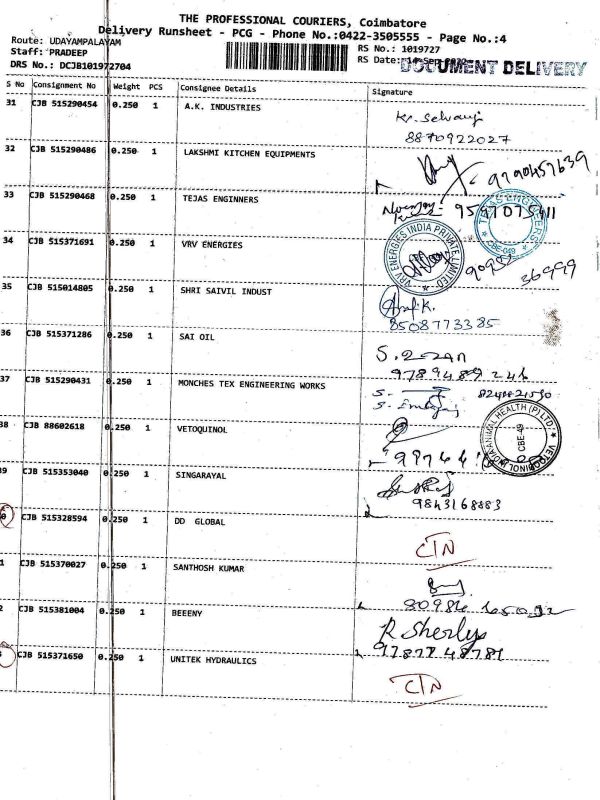 THE PROFESSIONAL COURIERS, Coimbatore
Delivery Runsheet - PCG - Phone No.:0422-3505555 - Page No.:4
Route: UDAYAMPALAYAM
Staff: PRADEEP
DRS No.: DCJB101972704
RS No.: 1019727
RS Date:
DOCUMENT DELIVERY
S No Consignment No Weight PCS Consignee Details Signature
31 CJB 515290454 0.250 1 A.K. INDUSTRIES
8870922027
32 CJB 515290486 0.250 1 LAKSHMI KITCHEN EQUIPMENTS
9790457639
33 CJB 515290468 0.250 1 TEJAS ENGINNERS
TEJAS ENGINEERS
CBE-049
34 CJB 515371691 0.250 1 VRV ENERGIES
ENERGIES INDIA PRIVATE LIMITED
36999
35 CJB 515014805 0.250 1 SHRI SAIVIL INDUST
8508773385
36 CJB 515371286 0.250 1 SAI OIL
37 CJB 515290431 0.250 1 MONCHES TEX ENGINEERING WORKS
38 CJB 88602618 0.250 1 VETOQUINOL
VETOQUINOL INDIA ANIMAL HEALTH (P) LTD.
CBE-49
39 CJB 515353040 0.250 1 SINGARAYAL
9843168883
0 CJB 515328594 0.250 1 DD GLOBAL
CTN
1 CJB 515370027 0.250 1 SANTHOSH KUMAR
2 CJB 515381004 0.250 1 BEEENY
R Sherly
CJB 515371650 0.250 1 UNITEK HYDRAULICS
CTN